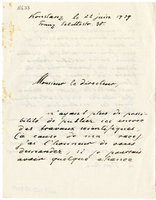 Konstanz le 22 juin 1939
Monsieur le directeur,
n'ayant plus de possi-
bilité de publier ici encore
des travaux scientifiques,
(à cause de ma race)
j'ai l'honneur de vous
demander, si je pourrais
avoir quelque chance